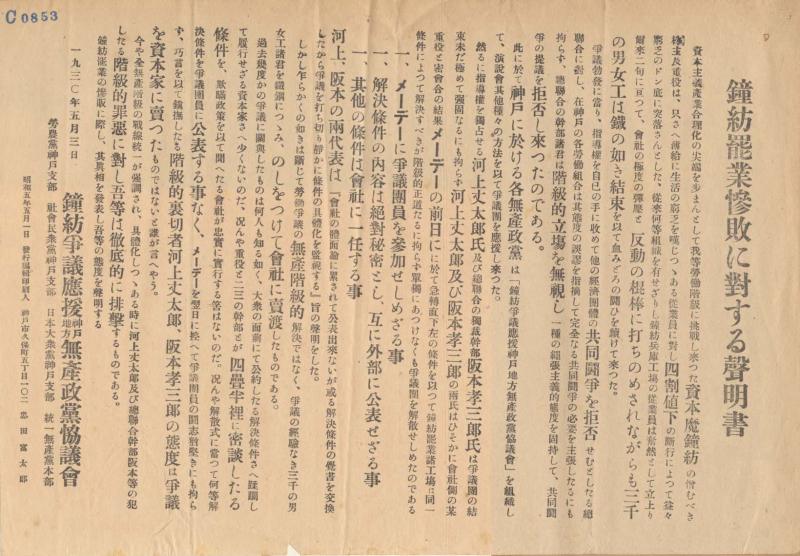 C 0853
鐘紡罷業慘敗に對する聲明書
資本主義產業合理化の尖端を步まんとして我等勞働階級に挑戰し來つた資本魔鐘紡の憎むべき
株主及重役は、只さへ薄給に生活の窮乏を嘆じつゝある從業員に對し四割値下の斷行によつて益々
窮乏のドン底に突落さんとした、從來何等組織を有せざりし鐘紡兵庫工場の從業員は奮然として立上り
爾來二旬に亘つて、會社の極度の彈壓と反動の棍棒に打ちのめされながらも三千
の男女工は鐵の如き結束を以て血みどろの鬪ひを續けて來つた。
爭議勃發に當り、指導權を自己の手に收めて他の經濟團體の共同鬪爭を拒否せむとしたる總
聯合に對し、在神戶の各勞働組合は其態度の誤認を指摘して完全なる共同鬪爭の必要を主張したるにも
拘らず、總聯合の幹部諸君は階級的立塲を無視し一種の繩張主義的態度を固持して、共同鬪
爭の提議を拒否し來つたのである。
此に於て神戶に於ける各無產政黨は「鐘紡爭議應援神戶地方無產政黨協議會」を組織し
て、演說會其他種々の方法を以て爭議團を應援し來つた。
然るに指導權を獨占せる河上丈太郎氏及び總聯合の獨裁幹部阪本孝三郎氏は爭議團の結
束未だ極めて强固なるにも拘らず河上丈太郎及び阪本孝三郎の兩氏はひそかに會社側の某
重役と密會の結果メーデーの前日にに於て急轉直下左の條件を以つて鐘紡罷業諸工塲は同一
條件によつて解決すべきが階級的正道たるに拘らず單獨にあつけなくも爭議團を解散せしめたのである
一、メーデーに爭議團員を參加せしめざる事
一、解決條件の內容は絕對秘密とし、互に外部に公表せざる事
一、其他の條件は會社に一任する事
河上、阪本の兩代表は『會社の體面論に累されて公表出來ないが或る解決條件の覺書を交換
したから爭議を打ち切り靜かに條件の具體化を監視する』旨の聲明をした。
しかし乍らかくの如きは斷じて勞働爭議の無產階級的解決ではなく、爭議の經驗なき三千の男
女工諸君を鐵鎖につゝみ、のしをつけて會社に賣渡したものである。
過去幾度かの爭議に關與したものは何人も知る如く、大衆の面前にて公約したる解決條件さへ蹂躙し
て履行せざる資本家さへ少くないのだ、況んや重役と二三の幹部とが四疊半裡に密談したる
條件を、欺瞞政策を以て聞へたる會社が忠實に實行する筈はないのだ。況んや解散式に當つて何等解
決條件を爭議團員に公表する事なく、メーデーを翌日に控へて爭議團員の鬪志猶堅きにも拘ら
ず、巧言を以て鎭撫したる階級的裏切者河上丈太郎、阪本孝三郎の態度は爭議
を資本家に賣つたものではないと誰が言へやう。
今や全無產階級の戰線統一が强調され、具體化しつゝある時に河上丈太郎及び總聯合幹部阪本等の犯
したる階級的罪惡に對し吾等は徹底的に排擊するものである。
鐘紡罷業の慘敗に際し、其眞相を發表し吾等の態度を聲明する
一九三〇年五月三日
鐘紡爭議應援神戶地方無產政黨協議會
勞農黨神戶支部 社會民衆黨神戶支部 日本大衆黨神戶支部 統一無產黨本部
昭和五年五月一日 發行編輯印刷人 神戶市久保町五丁目一〇二 恩田富太郎